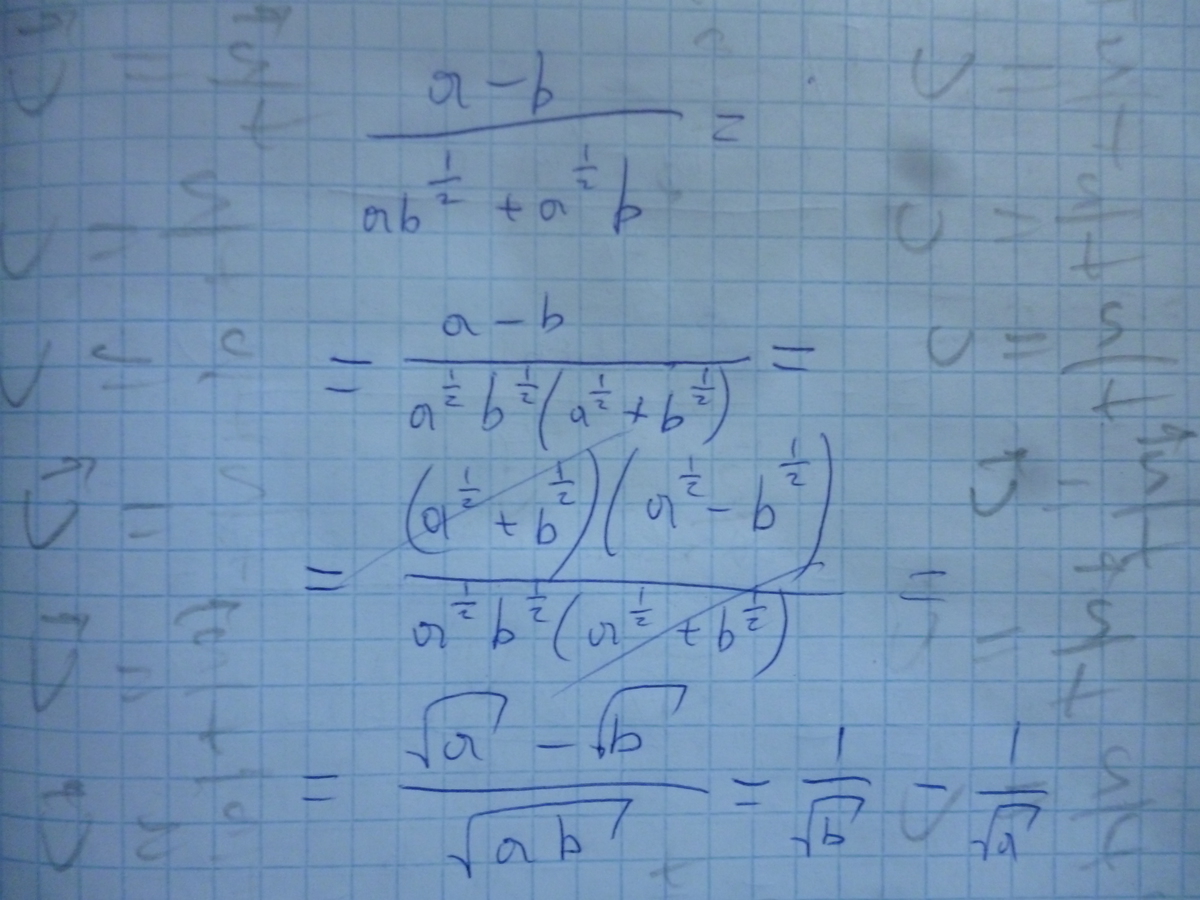 (a - b) / (ab^(1/2) + a^(1/2) b) =
= (a - b) / (a^(1/2) b^(1/2) (a^(1/2) + b^(1/2))) =
= ((a^(1/2) + b^(1/2)) (a^(1/2) - b^(1/2))) / (a^(1/2) b^(1/2) (a^(1/2) + b^(1/2))) =
= (√a - √b) / √(ab) = 1/√b - 1/√a